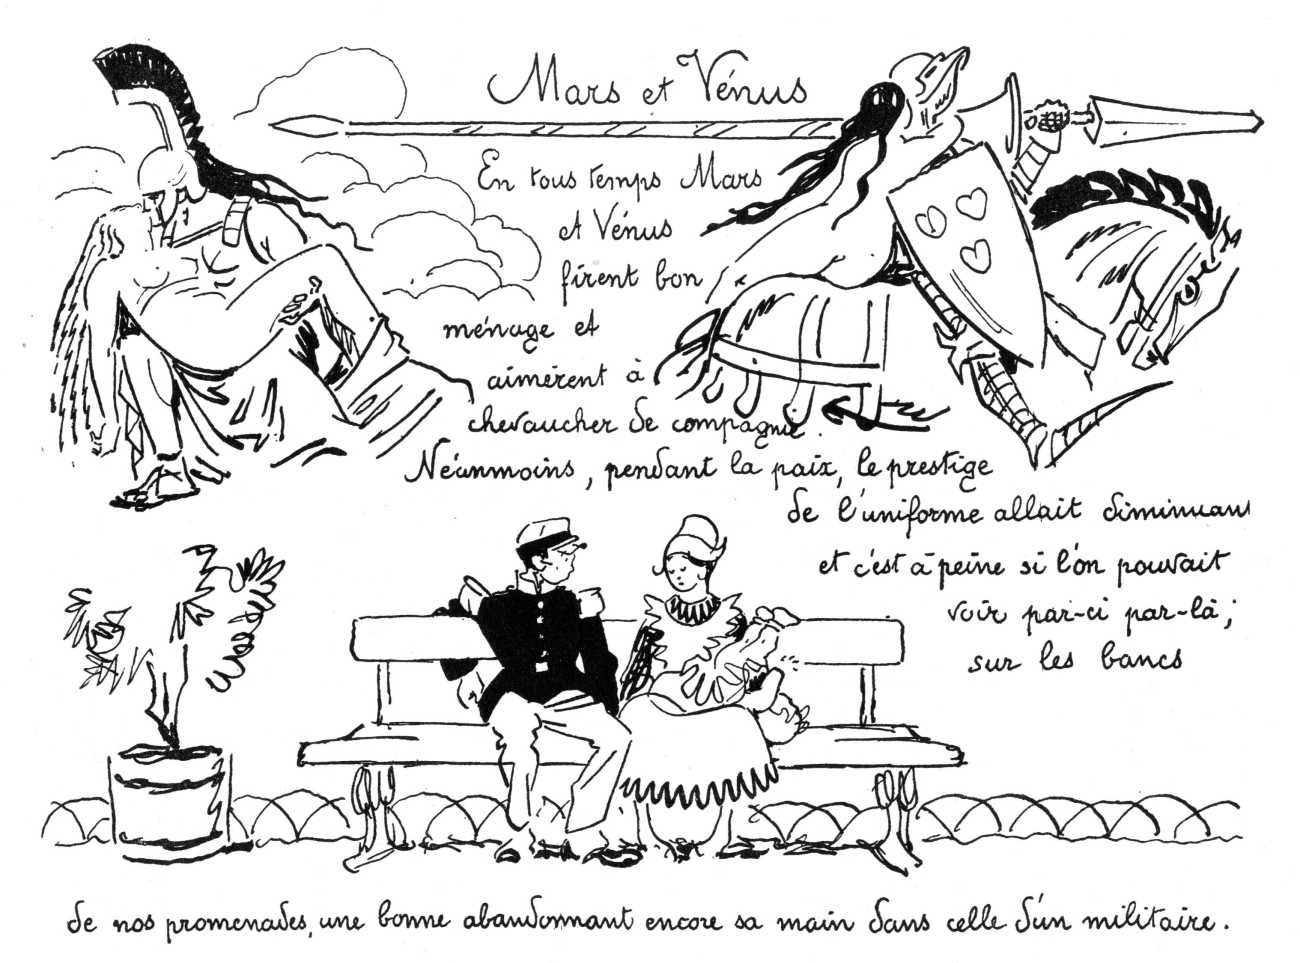 Mars et Vénus
En tous temps Mars
et Vénus
firent bon
ménage et
aimèrent à
chevaucher de compagnie.
Néanmoins, pendant la paix, le prestige
de l'uniforme allait diminuant
et c'est à peine si l'on pouvait
voir par-ci par-là,
sur les bancs
de nos promenades, une bonne abandonnant encore sa main dans celle d'un militaire.